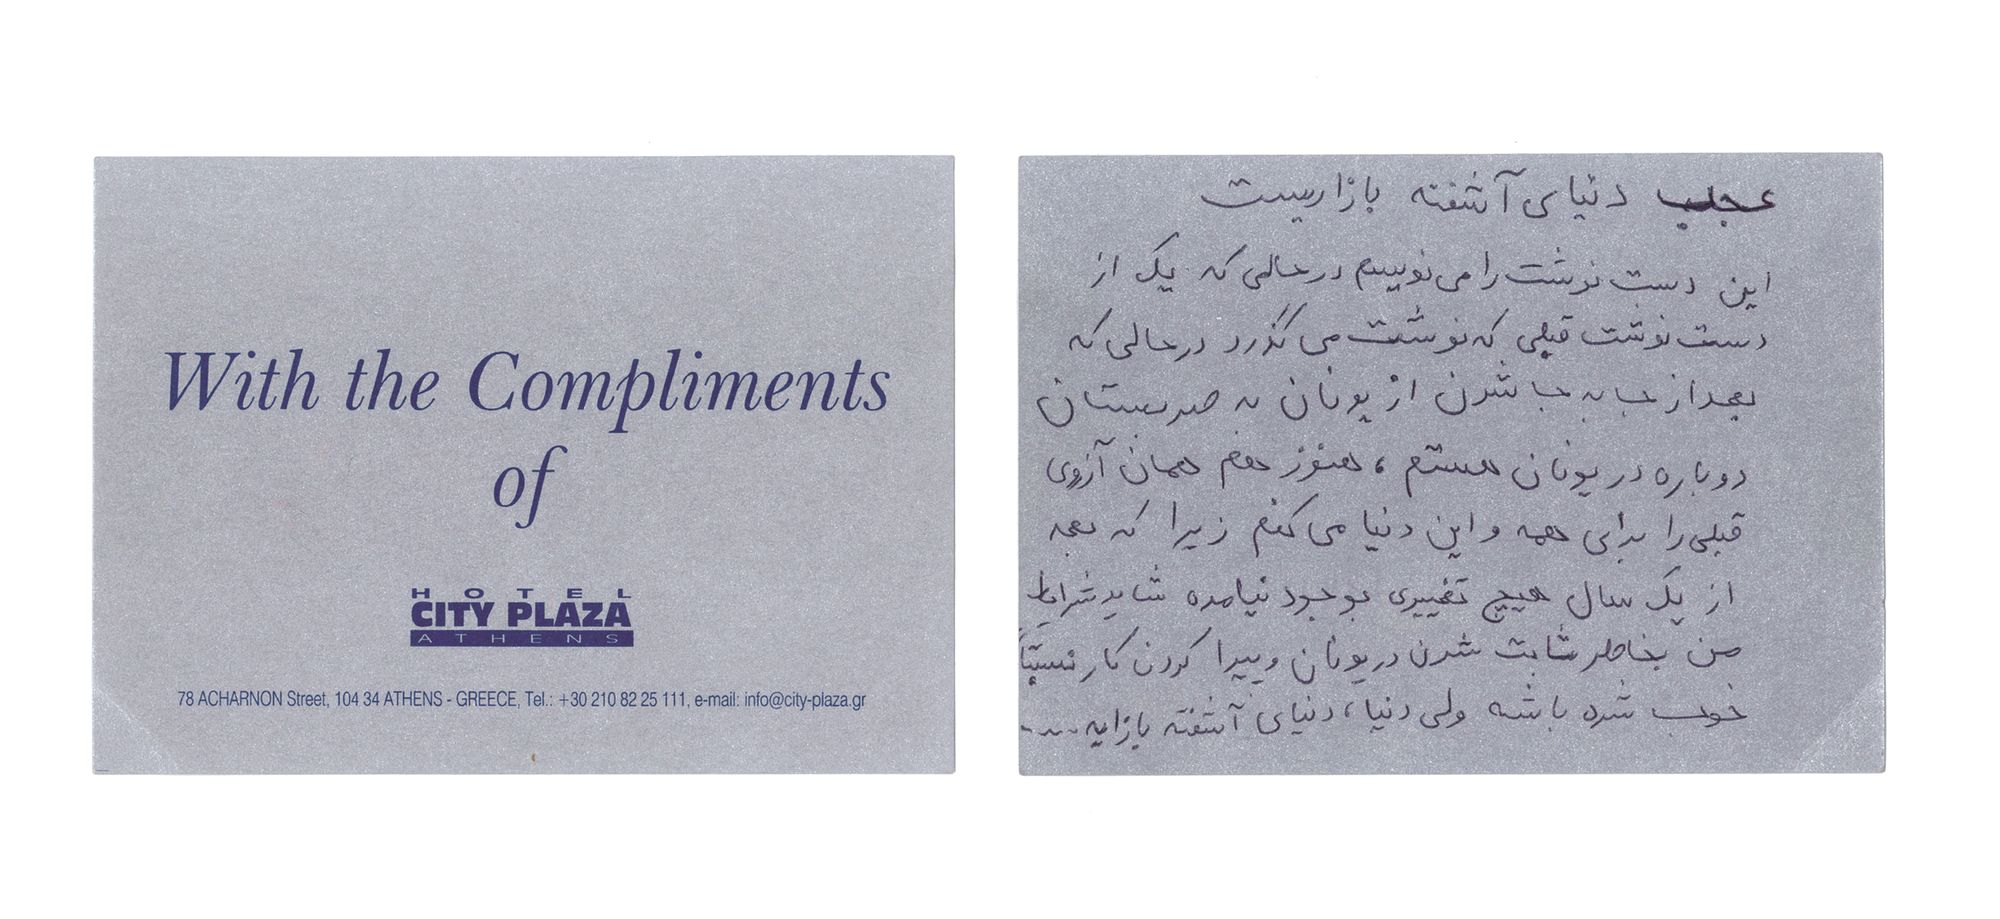 With the Compliments
of
HOTEL
CITY PLAZA
ATHENS
78 ACHARNON Street, 104 34 ATHENS - GREECE, Tel.: +30 210 82 25 111, e-mail: info@city-plaza.gr
عجب دنیای آشفته بازاریست
این دست نوشت را می نویسم در حالی که یک از
دست نوشت قبلی که نوشت می گذرد در حالی که
بعد از جا به جا شدن از یونان به صربستان
دوباره در یونان هستم، هنوز هم همان آرزوی
قبلی را برای همه و این دنیا می کنم زیرا که بعد
از یک سال هیچ تغییری بوجود نیامده شاید شرایط
من بخاطر ثابت شدن در یونان و پیدا کردن کار نسبتاً
خوب شده باشه ولی دنیا، دنیای آشفته بازایه.....